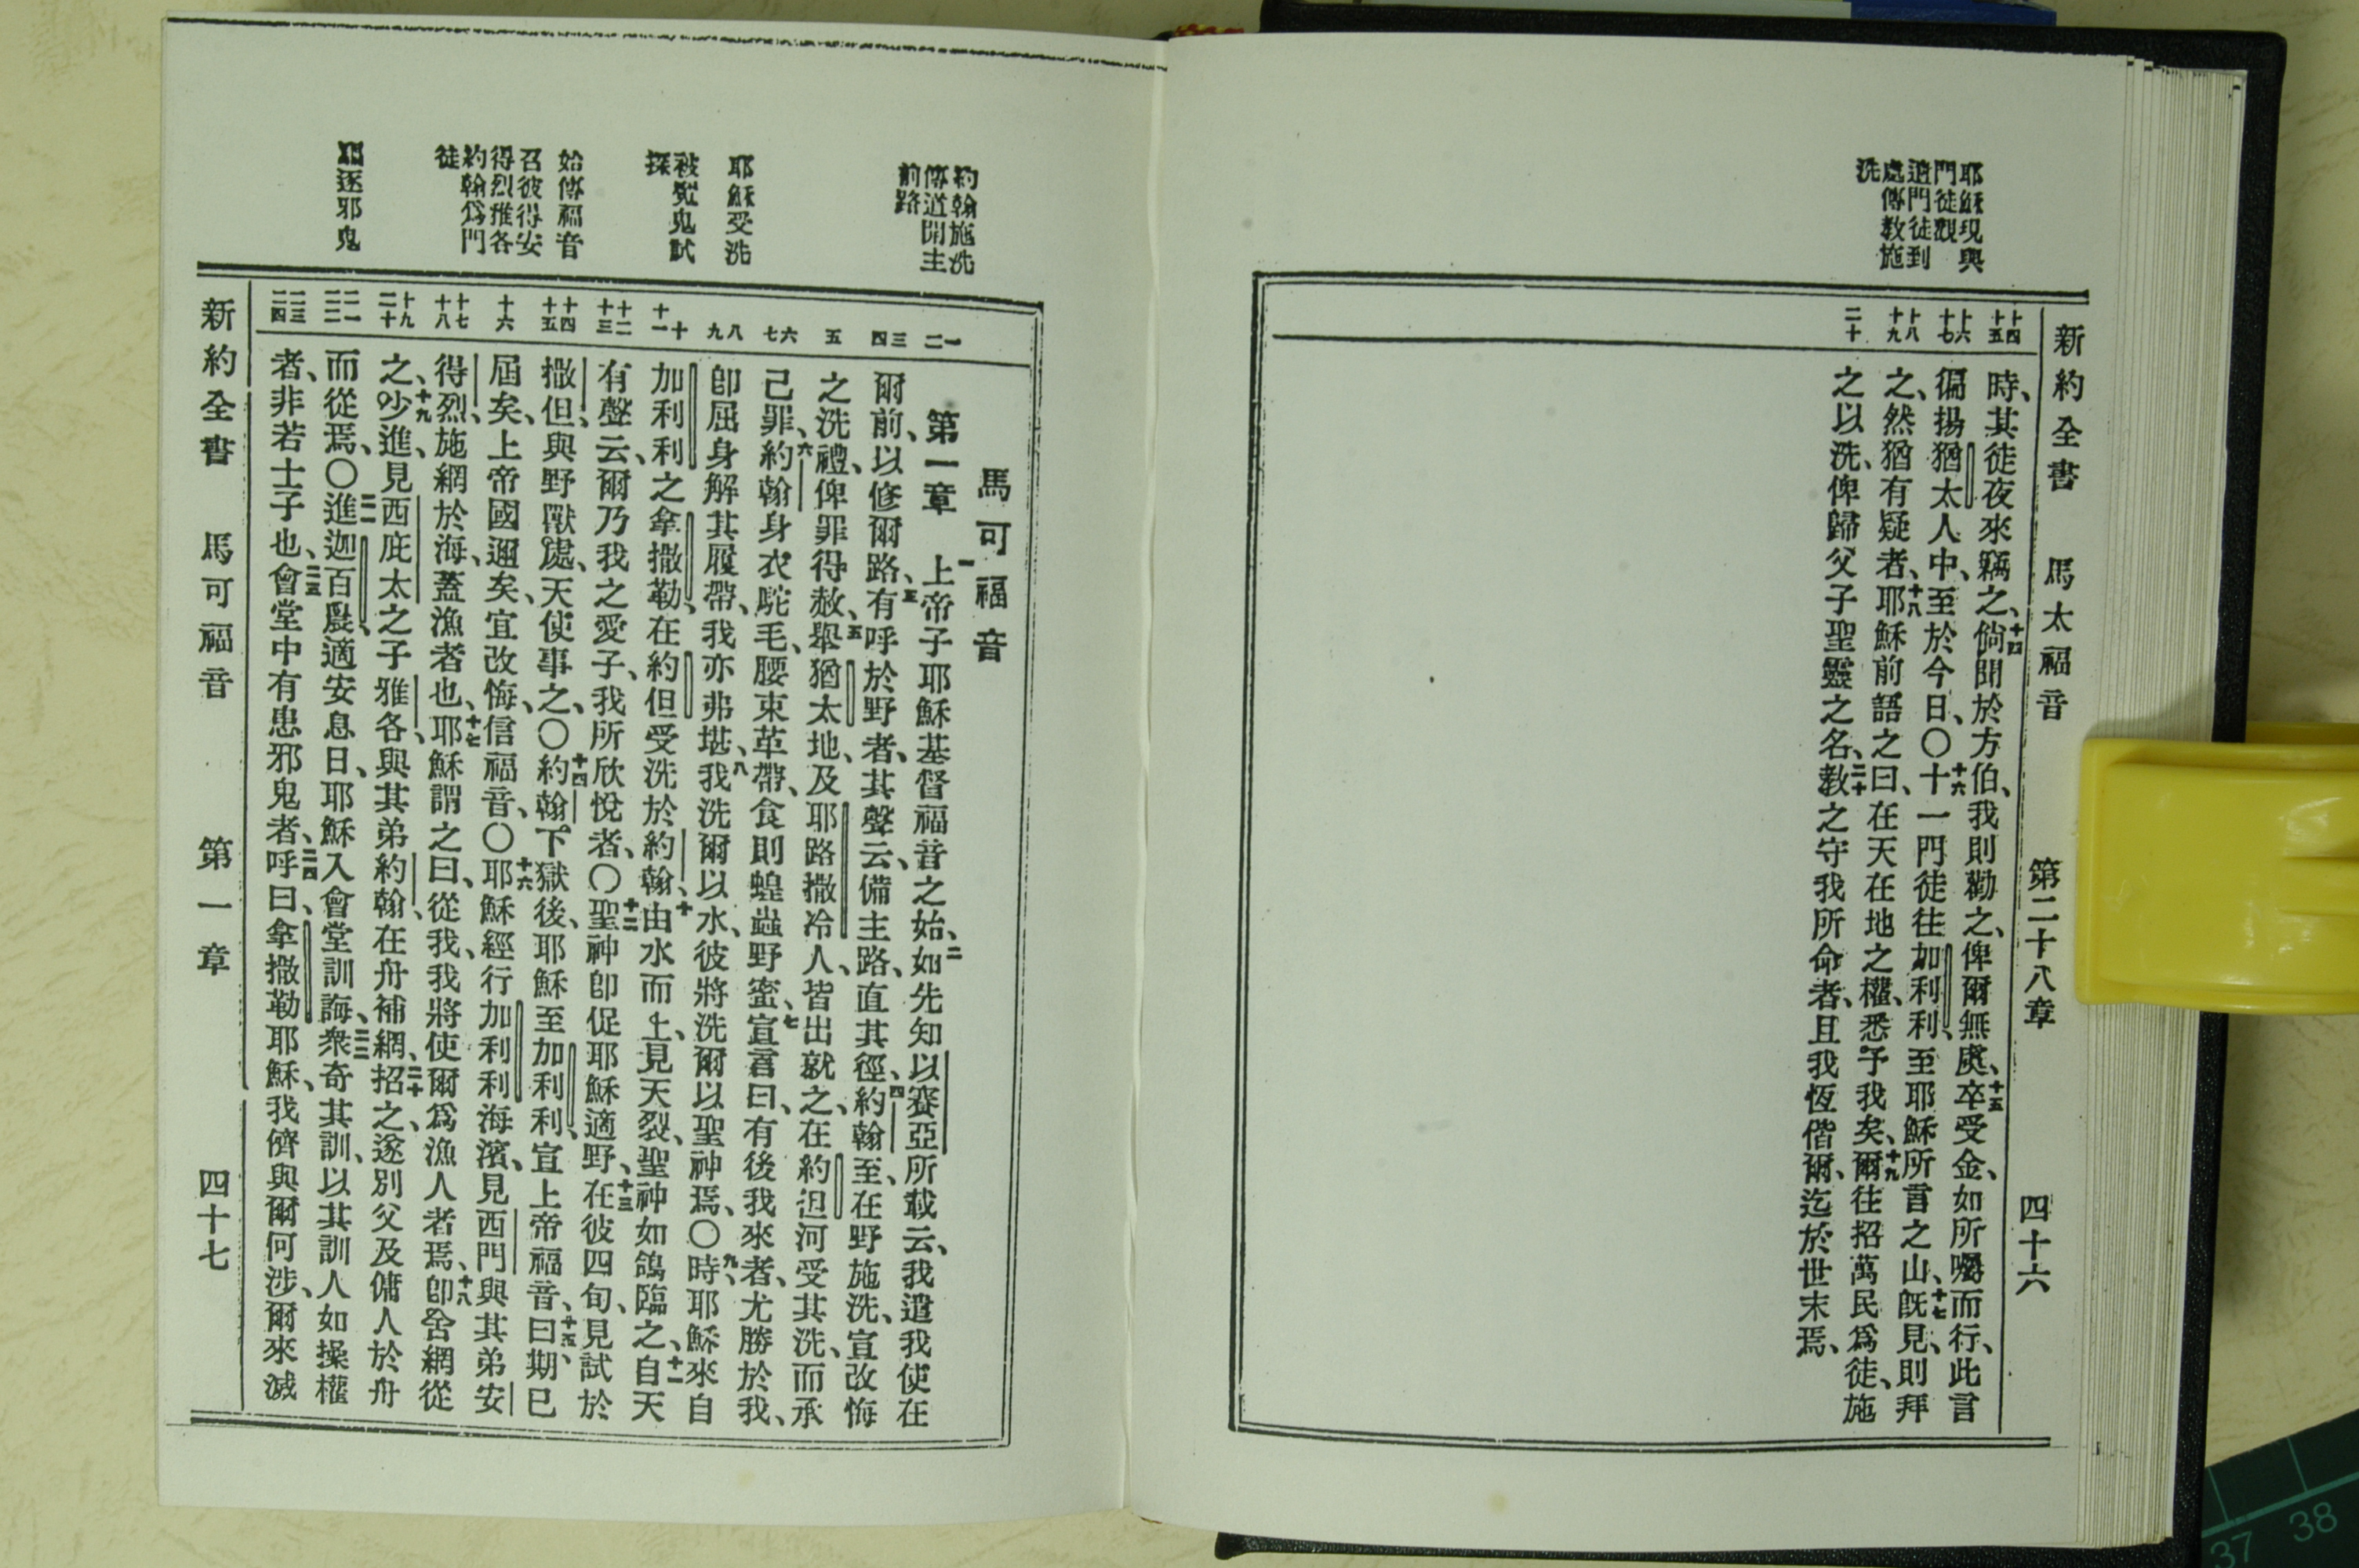 新約全書 馬太福音 第二十八章 四十六
耶穌現與
門徒觀
遣門徒到
處傳教施
洗
十四 十五
十六 十七
十八 十九
二十
時、其徒夜來竊之、十四倘聞於方伯、我則勸之、俾爾無慮、十五卒受金、如所囑而行、此言
徧揚猶太人中、至於今日、〇十六十一門徒往加利利、至耶穌所言之山、十七既見、則拜
之、然猶有疑者、十八耶穌前語之曰、在天在地之權、悉予我矣、十九爾往招萬民爲徒、施
之以洗、俾歸父子聖靈之名、二十教之守我所命者、且我恆偕爾、迄於世末焉、
約翰施洗
傳道開主
前路
耶穌受洗
被魔鬼試
探
始傳福音
召彼得安
得烈雅各
約翰爲門
徒
逐邪鬼
一 二
三 四
五
六 七
八 九
十 十一
十二 十三
十四 十五
十六
十七 十八
十九 二十
二一 二二
二三 二四
馬可福音
第一章 一上帝子耶穌基督福音之始、二如先知以賽亞所載云、我遣我使在
爾前、以修爾路、三有呼於野者、其聲云、備主路、直其徑、四約翰至、在野施洗、宣改悔
之洗禮、俾罪得赦、五舉猶太地、及耶路撒冷人、皆出就之、在約但河受其洗、而承
己罪、六約翰身衣駝毛、腰束革帶、食則蝗蟲野蜜、七宣言曰、有後我來者、尤勝於我、
卽屈身解其履帶、我亦弗堪、八我洗爾以水、彼將洗爾以聖神焉、〇九時、耶穌來自
加利利之拿撒勒、在約但受洗於約翰、十由水而上、見天裂、聖神如鴿臨之、十一自天
有聲云、爾乃我之愛子、我所欣悅者、〇十二聖神卽促耶穌適野、十三在彼四旬、見試於
撒但、與野獸處、天使事之、〇十四約翰下獄後、耶穌至加利利、宣上帝福音、十五曰、期已
屆矣、上帝國邇矣、宜改悔、信福音、〇十六耶穌經行加利利海濱、見西門與其弟安
得烈、施網於海、蓋漁者也、十七耶穌謂之曰、從我、我將使爾爲漁人者焉、十八卽舍網從
之、十九少進、見西庇太之子雅各、與其弟約翰、在舟補網、二十招之、遂別父及傭人於舟
而從焉、〇二一進迦百農、適安息日、耶穌入會堂訓誨、二二衆奇其訓、以其訓人如操權
者、非若士子也、二三會堂中有患邪鬼者、二四呼曰、拿撒勒耶穌、我儕與爾何涉、爾來滅
新約全書 馬可福音 第一章 四十七
37 38